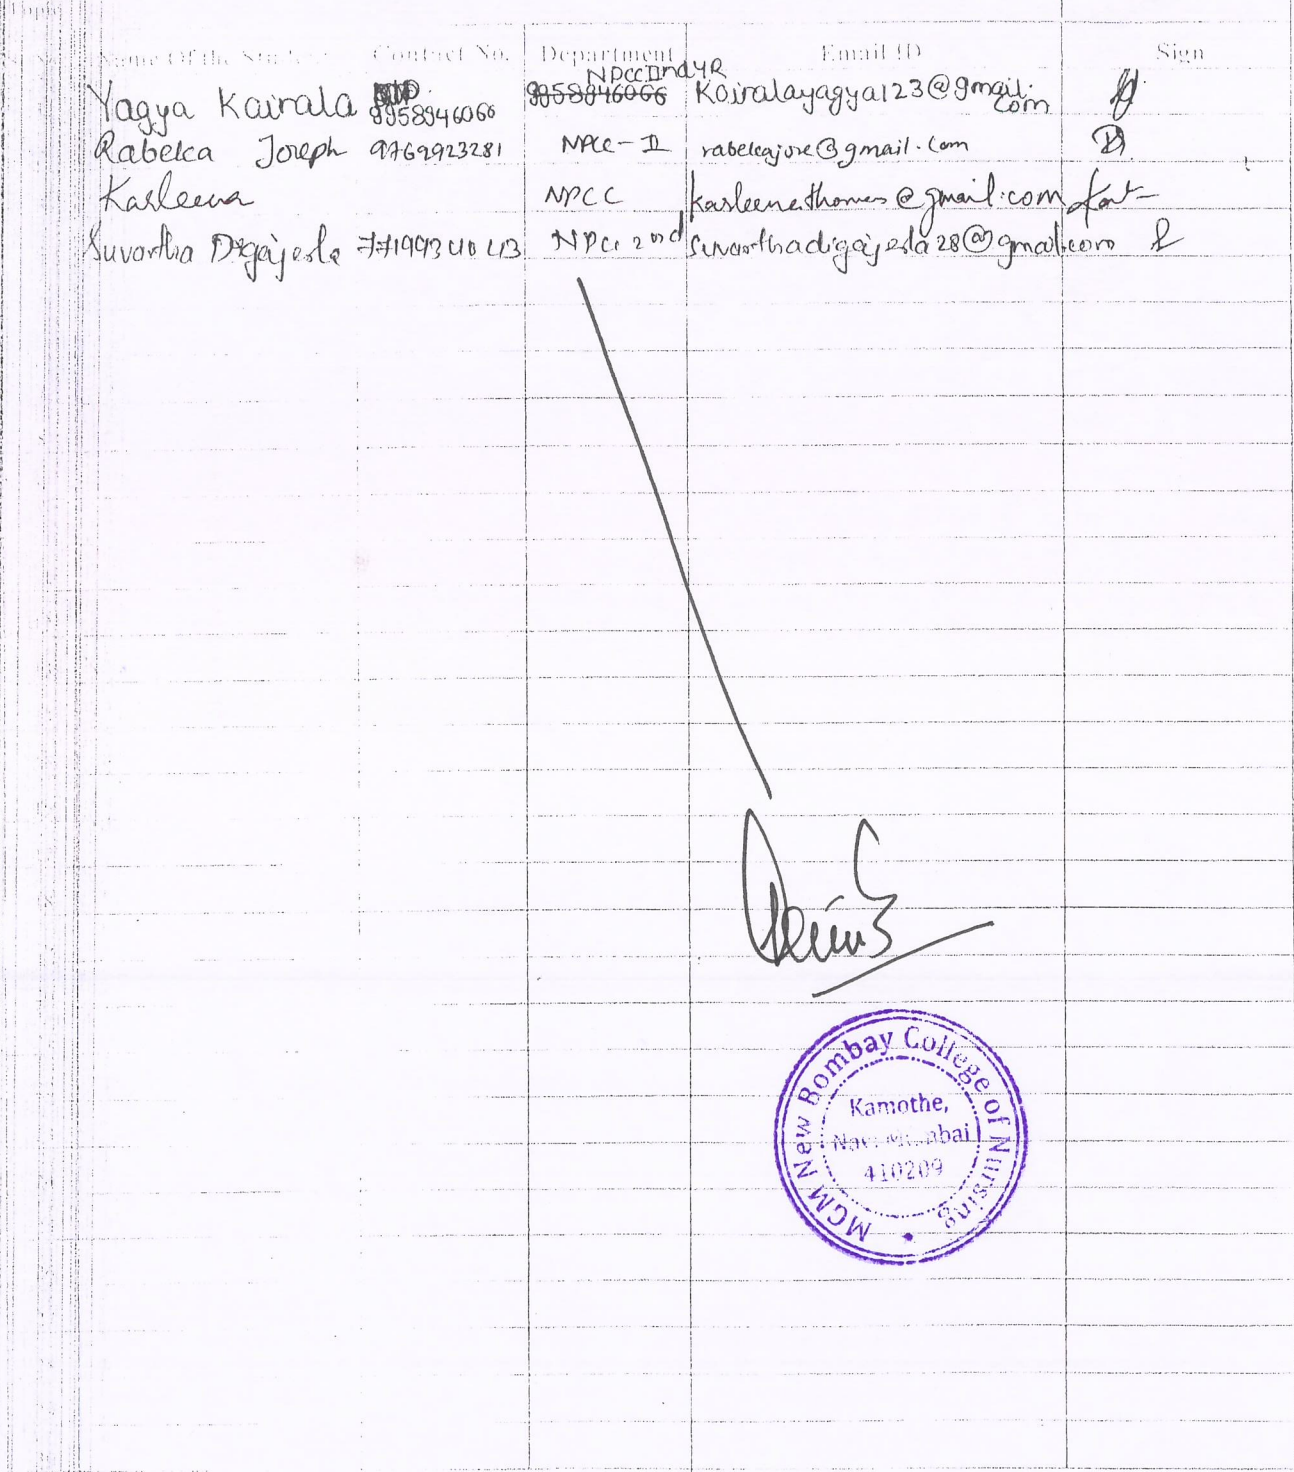 Topic
Name Of the Student Contact No. Department Email ID Sign
Yagya Kairala 9958946066 NPCC IInd YR Kairalayagya123@gmail.com
Rabekca Joseph 9769923281 NPCC - II rabekajose@gmail.com
Kasleena NPCC kasleenathomas@gmail.com
Suvartha Digajerla 7719934043 NPCC 2nd suvarthadigajerla28@gmail.com
MGM New Bombay College of Nursing
Kamothe,
Navi Mumbai
410209